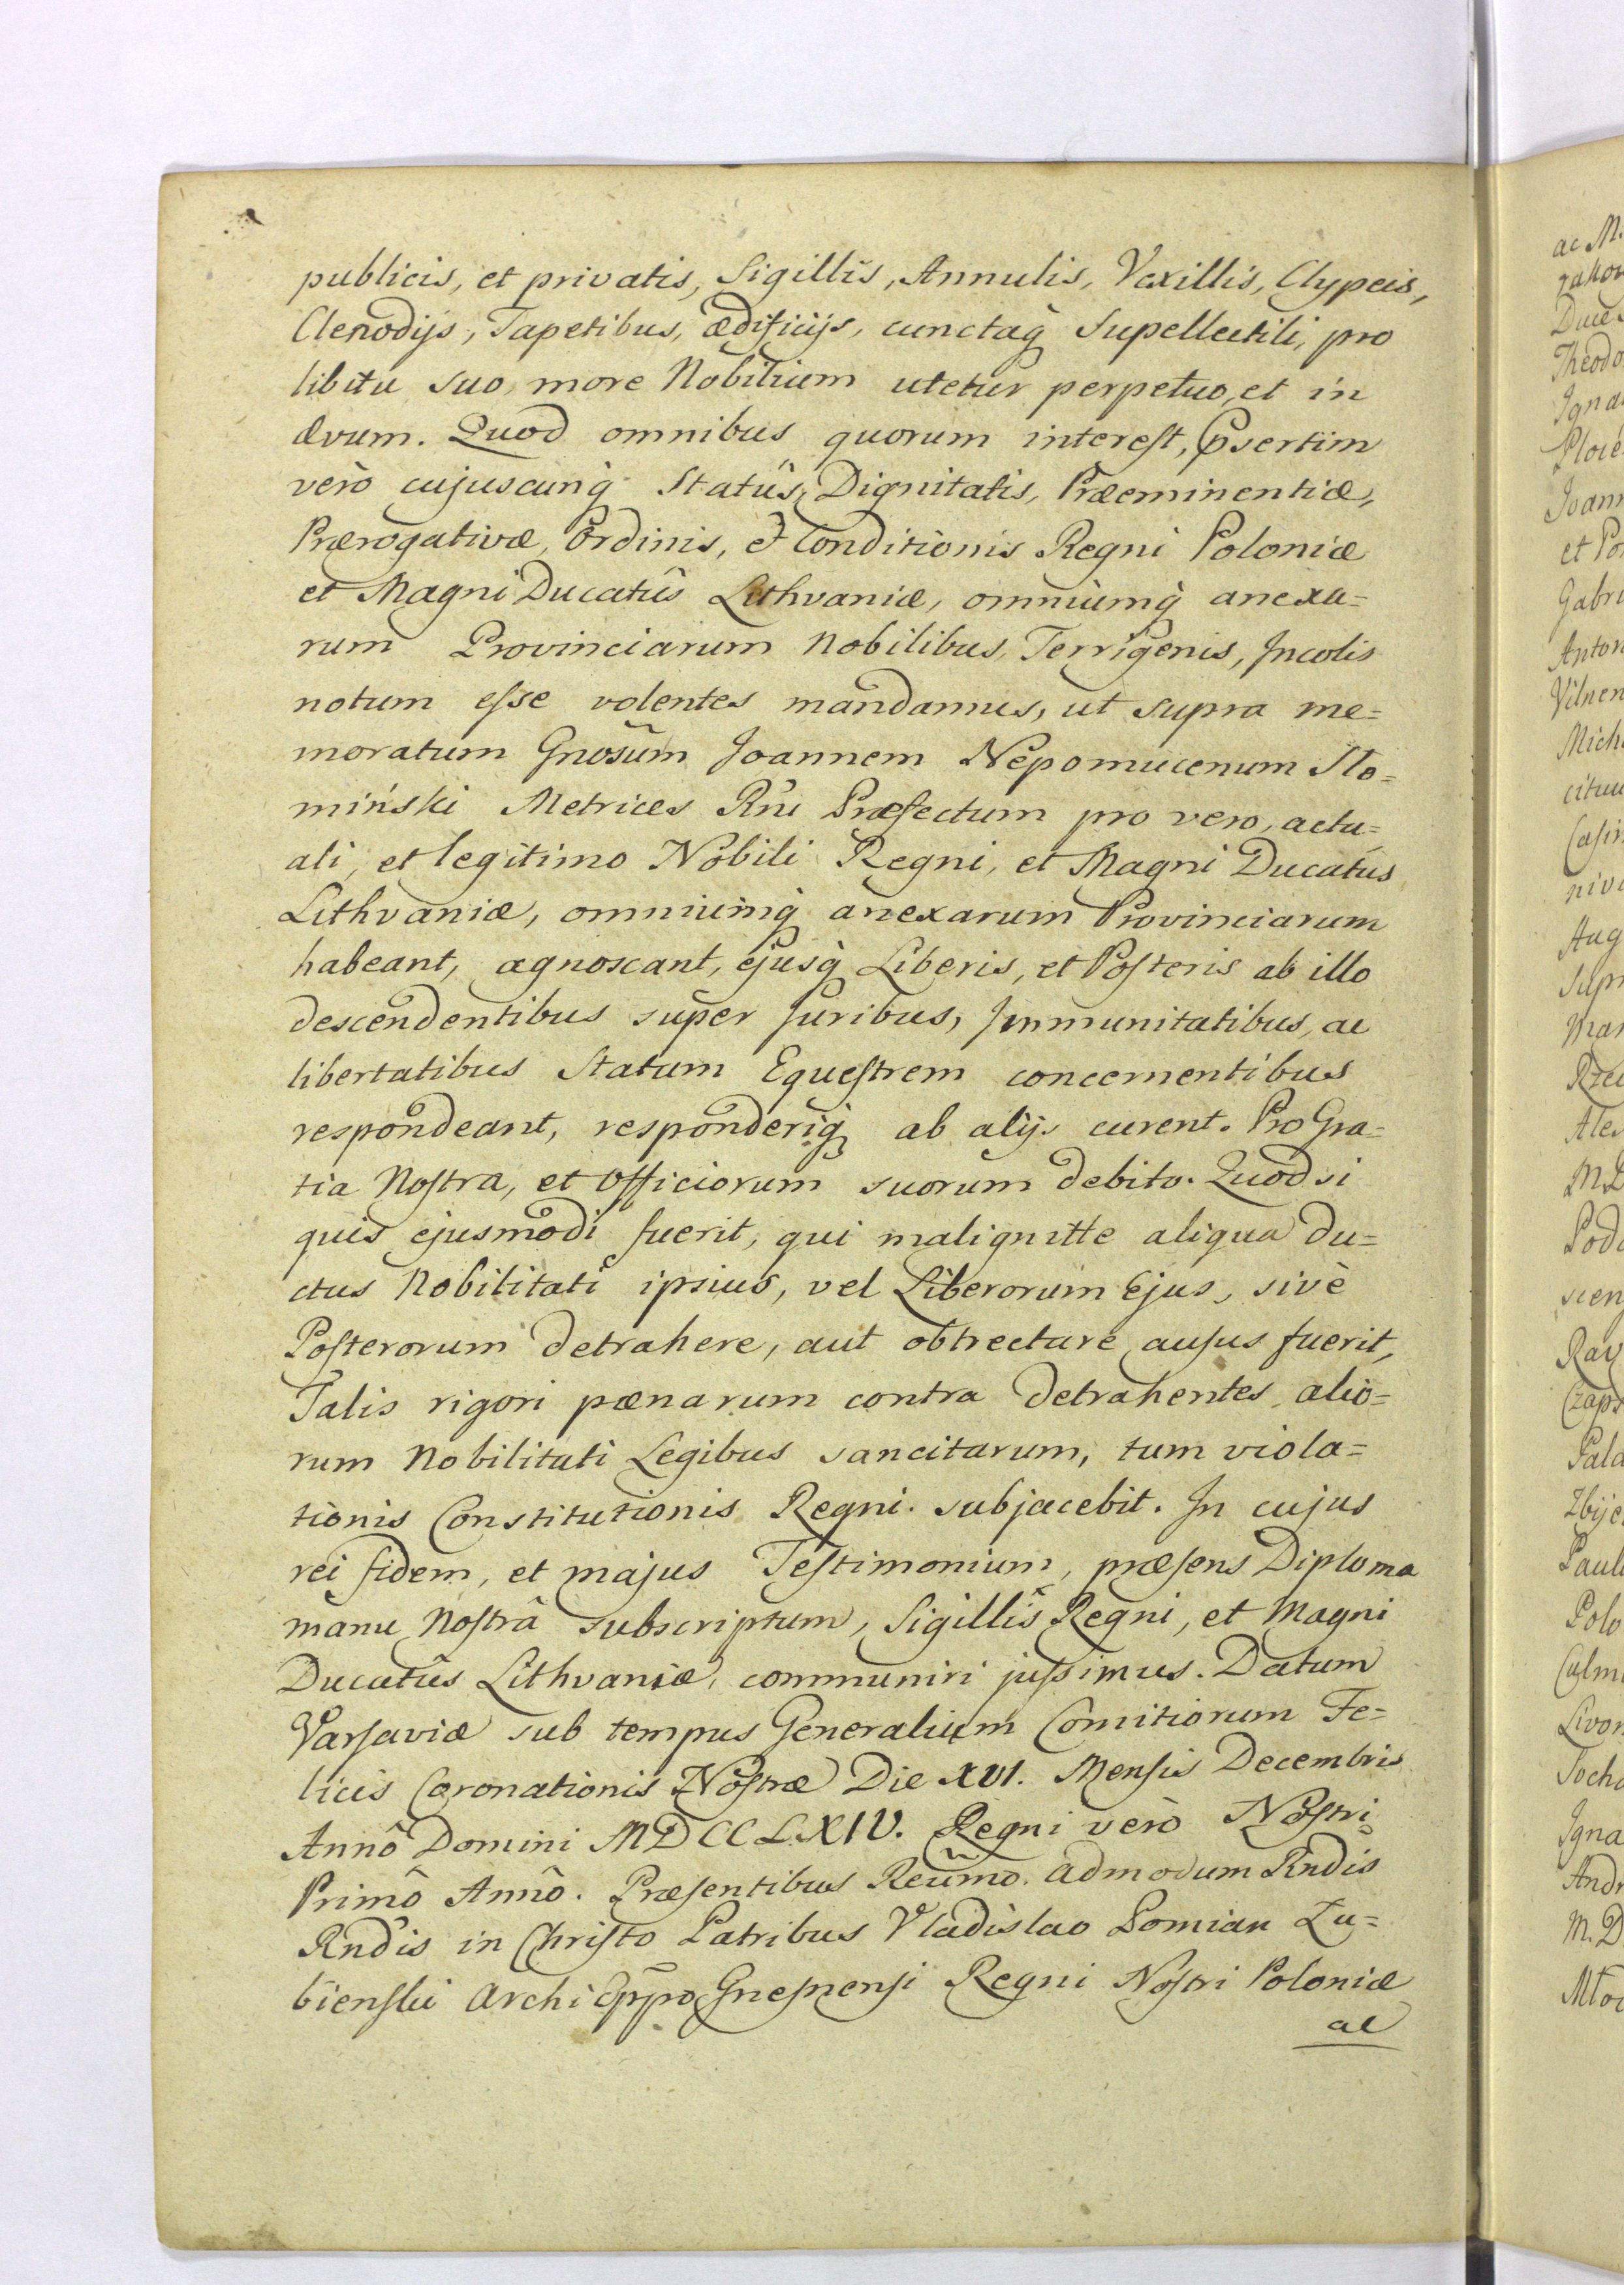 publicis, et privatis, Sigillis, Annulis, Vexillis, Clypeis,
Clenodijs, Tapetibus, ædificijs, cunctaq̀ Supellectili, pro
libitu suo, more Nobilium utetur perpetuo, et in
ævum. Quod omnibus quorum interest, p̃sertim
verò cujuscunq̀ Statûs, Dignitatis, Præeminentiæ,
Prærogativæ, Ordinis, et Conditionis Regni Poloniæ
et Magni Ducatûs Lithvaniæ, omniumq̀ anexa=
rum Provinciarum Nobilibus, Terrigenis, Incolis
notum esse volentes mandamus, ut supra me=
moratum Gnosũm Joannem Nepomucenum Sło=
miński Metrices Rñi Præfectum pro vero, actu=
ali, et legitimo Nobili Regni, et Magni Ducatûs
Lithvaniæ, omniumq̀ anexarum Provinciarum
habeant, agnoscant, ejusq̀ Liberis, et Posteris ab illo
descendentibus super Juribus, Immunitatibus, ac
libertatibus Statum Equestrem concernentibus
respondeant, responderiq̀ ab alijs curent. Pro Gra=
tia Nostra, et Officiorum suorum debito. Quod si
quis ejusmodi fuerit, qui malignitte aliqua du=
ctus Nobilitati ipsius, vel Liberorum Ejus, sivè
Posterorum detrahere, aut obtrectare ausus fuerit,
Talis rigori pænarum contra detrahentes alio=
rum Nobilitati Legibus sancitarum, tum viola=
tionis Constitutionis Regni subjacebit. In cujus
rei fidem, et majus Testimonium, præsens Diploma
manu Nostrâ subscriptum, Sigillis Regni, et Magni
Ducatûs Lithvaniæ, communiri jussimus. Datum
Varsaviæ sub tempus Generalium Comitiorum Fe=
licis Coronationis Nostræ Die XVI. Mensis Decembris
Annô Domini MDCCLXIV. Regni verò Nostri
Primô Annô. Præsentibus Reũmo. admodum Rndis
Rndis in Christo Patribus Vladislao Pomian Łu=
bienski Archi Eppo Gnesnensi Regni Nostri Poloniæ
ac